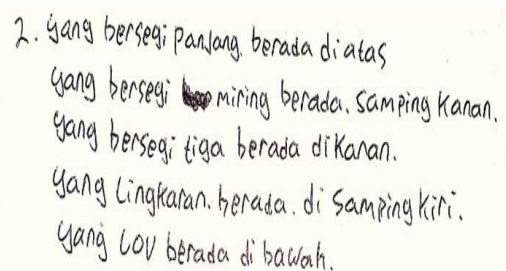 2. yang bersegi panjang. berada diatas
yang bersegi miring berada. samping kanan.
yang bersegi tiga berada dikanan.
yang Lingkaran. berada. di samping kiri.
yang LOV berada di bawah.